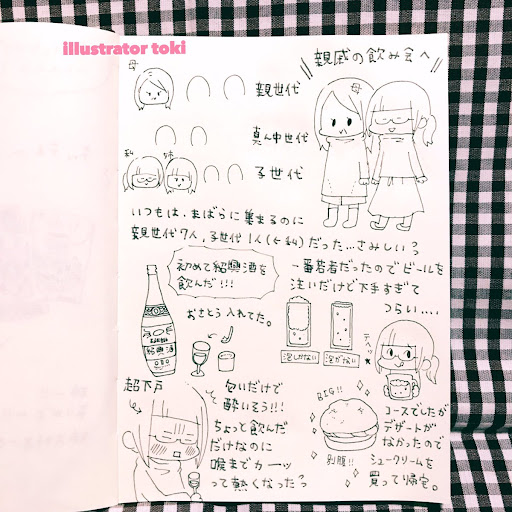 illustrator toki
\\親戚の飲み会へ//
母
親世代
母
真ん中世代
私 妹
子世代
いつもは、まばらに集まるのに
親世代7人、子世代1人(←私)だった…さみしい?
初めて紹興酒を
飲んだ!!!
おさとう入れてた。
紹興酒
一番若者だったのでビールを
注いだけど下手すぎて
つらい....
泡しかない
泡がない
テヘッ
超下戸
匂いだけで
酔いそう!!!
ちょっと飲んだ
だけなのに
喉までカーッ
って熱くなった?
BIG!!
別腹!!
コースでしたが
デザートが
なかったので
シュークリームを
買って帰宅。